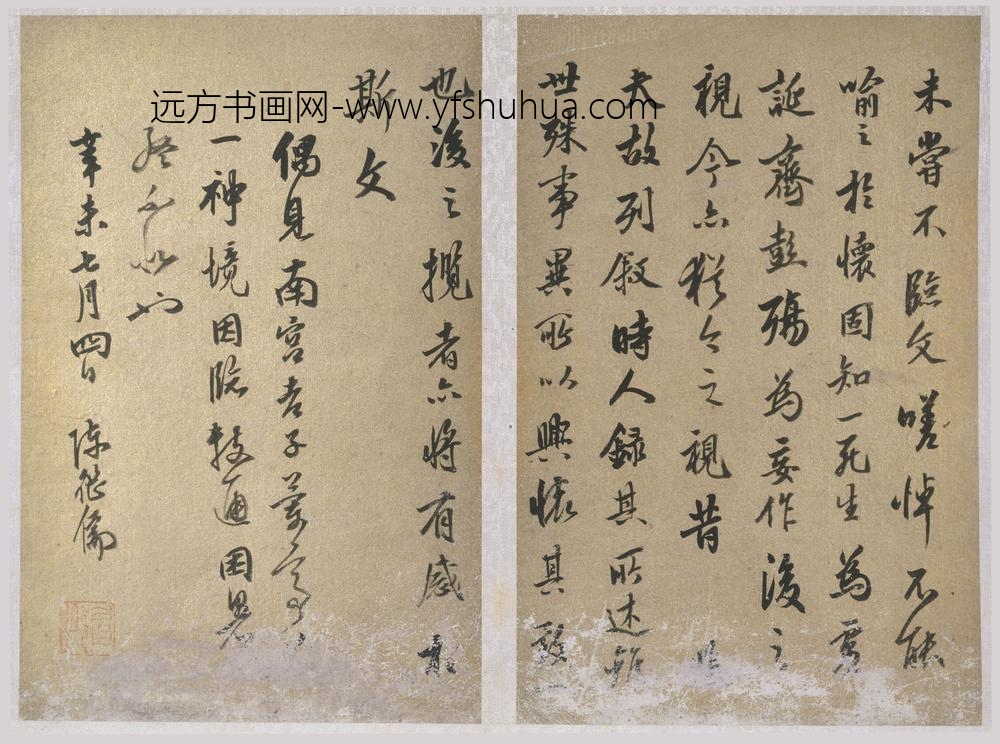 未嘗不臨文嗟悼不能
喻之於懷固知一死生為虛
誕齊彭殤為妄作後之
視今亦猶今之視昔
夫故列叙時人錄其所述雖
世殊事異所以興懷其致一
也後之攬者亦將有感於
斯文
偶見南宮
一神境因臨數過因思
辛未七月四日
远方书画网-www.yfshuhua.com